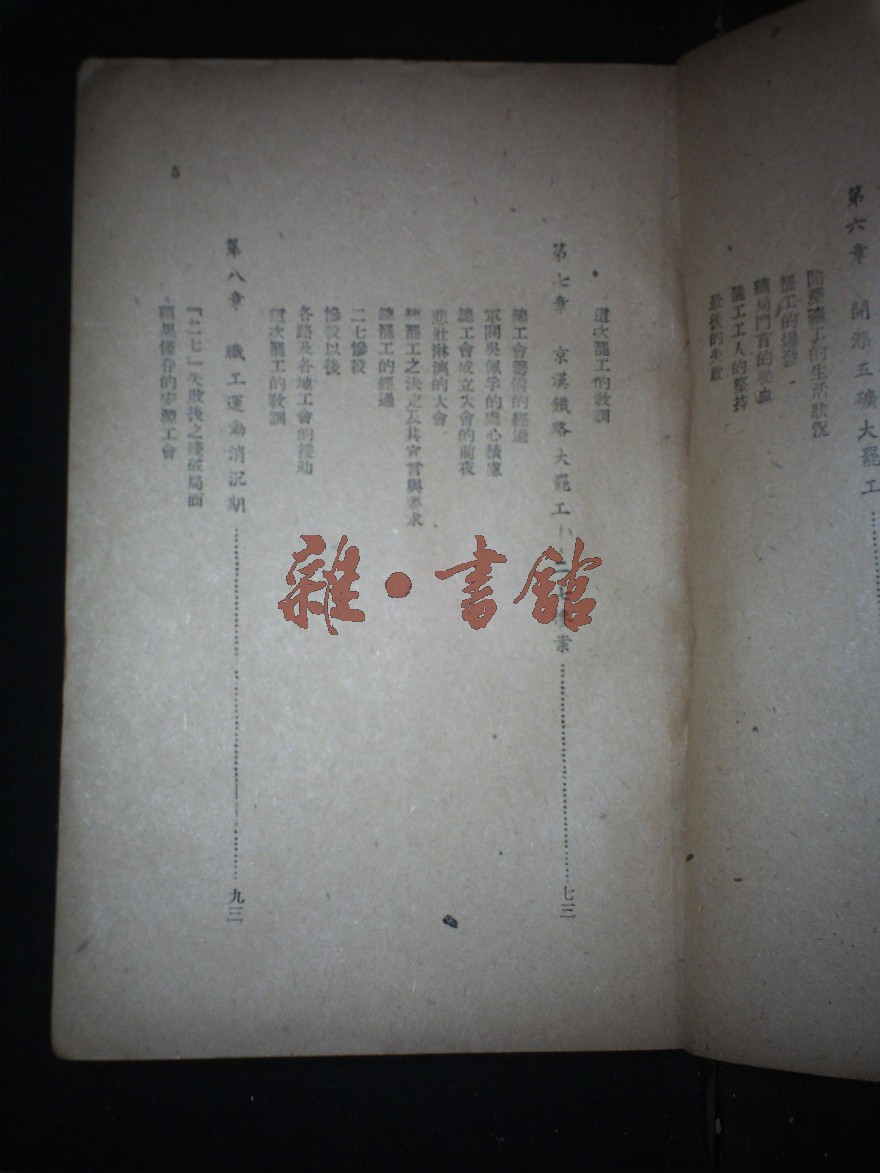 第六章 開灤五礦大罷工
開灤礦工的生活狀況
罷工的爆發
礦局門首的流血
罷工工人的堅持
最後的失敗
這次罷工的教訓
第七章 京漢鐵路大罷工 二七慘案 七三
總工會籌備的經過
軍閥吳佩孚的處心積慮
總工會成立大會的前夜
悲壯淋漓的大會
總罷工之決定及其宣言與要求
總罷工的經過
二七慘殺
慘殺以後
各路及各地工會的援助
這次罷工的教訓
第八章 職工運動消沉期 九三
「二七」失敗後之殘破局面
碩果僅存的安源工會
3
雜·書館